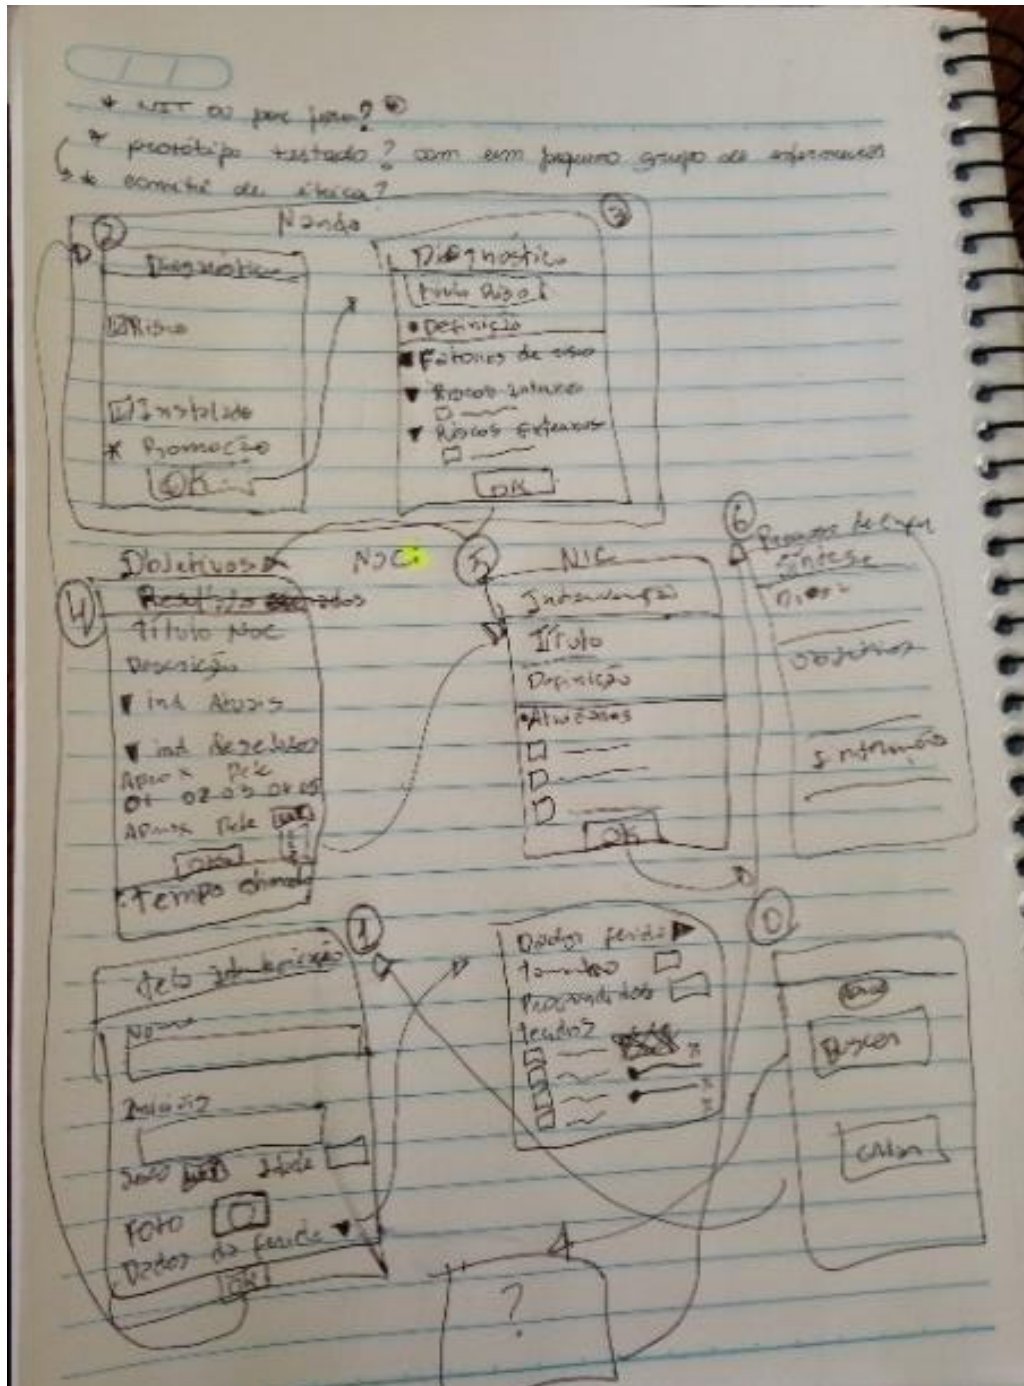 * NIT ou por fora?
* protótipo testado? com um pequeno grupo de enfermeiros
* comitê de ética?
Nanda
2
Diagnóstico
Risco
Instalado
* Promoção
OK
3
Diagnóstico
Título Risco
Definição
Fatores de risco
Riscos Internos
Riscos Externos
OK
Objetivos
NOC
4
Título NOC
Descrição
ind. Atuais
ind. Desejados
Aprox Pele
01 02 03 04 05
Aprox Pele
OK
Tempo
5
NIC
Intervenção
Título
Definição
Atividades
OK
6
Síntese
Objetivos
1
Tela Identificação
Nome
Iniciais
Sexo
Idade
Foto
Dados da ferida
OK
Dados ferida
tamanho
Profundidade
tecidos
0
Buscar
Criar
?